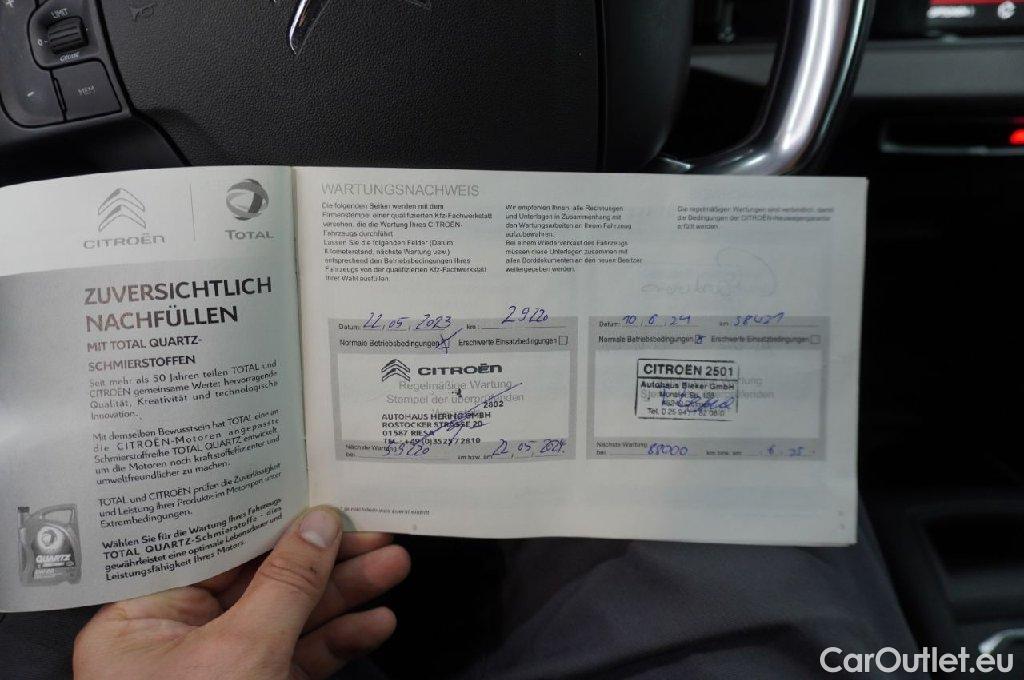 LIMIT
0
MEM
CITROËN
TOTAL
ZUVERSICHTLICH
NACHFÜLLEN
MIT TOTAL QUARTZ-
SCHMIERSTOFFEN
Seit mehr als 50 Jahren teilen TOTAL und
CITROËN gemeinsame Werte: hervorragende
Qualität, Kreativität und technologische
Innovation.
Mit demselben Bewusstsein hat TOTAL eine an
die CITROËN-Motoren angepasste
Schmierstoffreihe TOTAL QUARTZ entwickelt,
um die Motoren noch kraftstoffeffizienter und
umweltfreundlicher zu machen.
TOTAL und CITROËN prüfen die Zuverlässigkeit
und Leistung ihrer Produkte im Motorsport unter
Extrembedingungen.
Wählen Sie für die Wartung Ihres Fahrzeugs
TOTAL QUARTZ-Schmierstoffe - dies
gewährleistet eine optimale Lebensdauer und
Leistungsfähigkeit Ihres Motors.
QUARTZ
WARTUNGSNACHWEIS
Die folgenden Felder werden mit dem
Firmenstempel einer qualifizierten Kfz-Fachwerkstatt
versehen, die die Wartung Ihres CITROËN-
Fahrzeugs durchführt.
Lassen Sie die folgenden Felder (Datum,
Kilometerstand, nächste Wartung usw.)
entsprechend den Betriebsbedingungen Ihres
Fahrzeugs von der qualifizierten Kfz-Fachwerkstatt
Ihrer Wahl ausfüllen.
Wir empfehlen Ihnen, alle Rechnungen
und Unterlagen in Zusammenhang mit
den Wartungsarbeiten an Ihrem Fahrzeug
aufzubewahren.
Bei einem Wiederverkauf des Fahrzeugs
müssen diese Unterlagen zusammen mit
allen Borddokumenten an den neuen Besitzer
weitergegeben werden.
Die regelmäßigen Wartungen sind verbindlich, damit
die Bedingungen der CITROËN-Neuwagengarantie
erfüllt werden.
Datum: 22.05.2023 km: 29220
Normale Betriebsbedingungen Erschwerte Einsatzbedingungen
CITROËN
Regelmäßige Wartung
Stempel der überprüfenden
2802
AUTOHAUS HERING GMBH
ROSTOCKER STRASSE 20
01587 RIESA
Nächste Wartung
bei: 59220 km bzw. am: 22.05.2024
Datum: 10.6.24 km: 58431
Normale Betriebsbedingungen Erschwerte Einsatzbedingungen
CITROËN 2501
Autohaus Bieker GmbH
Nächste Wartung
bei: 88000 km bzw. am: 6.25
CarOutlet.eu